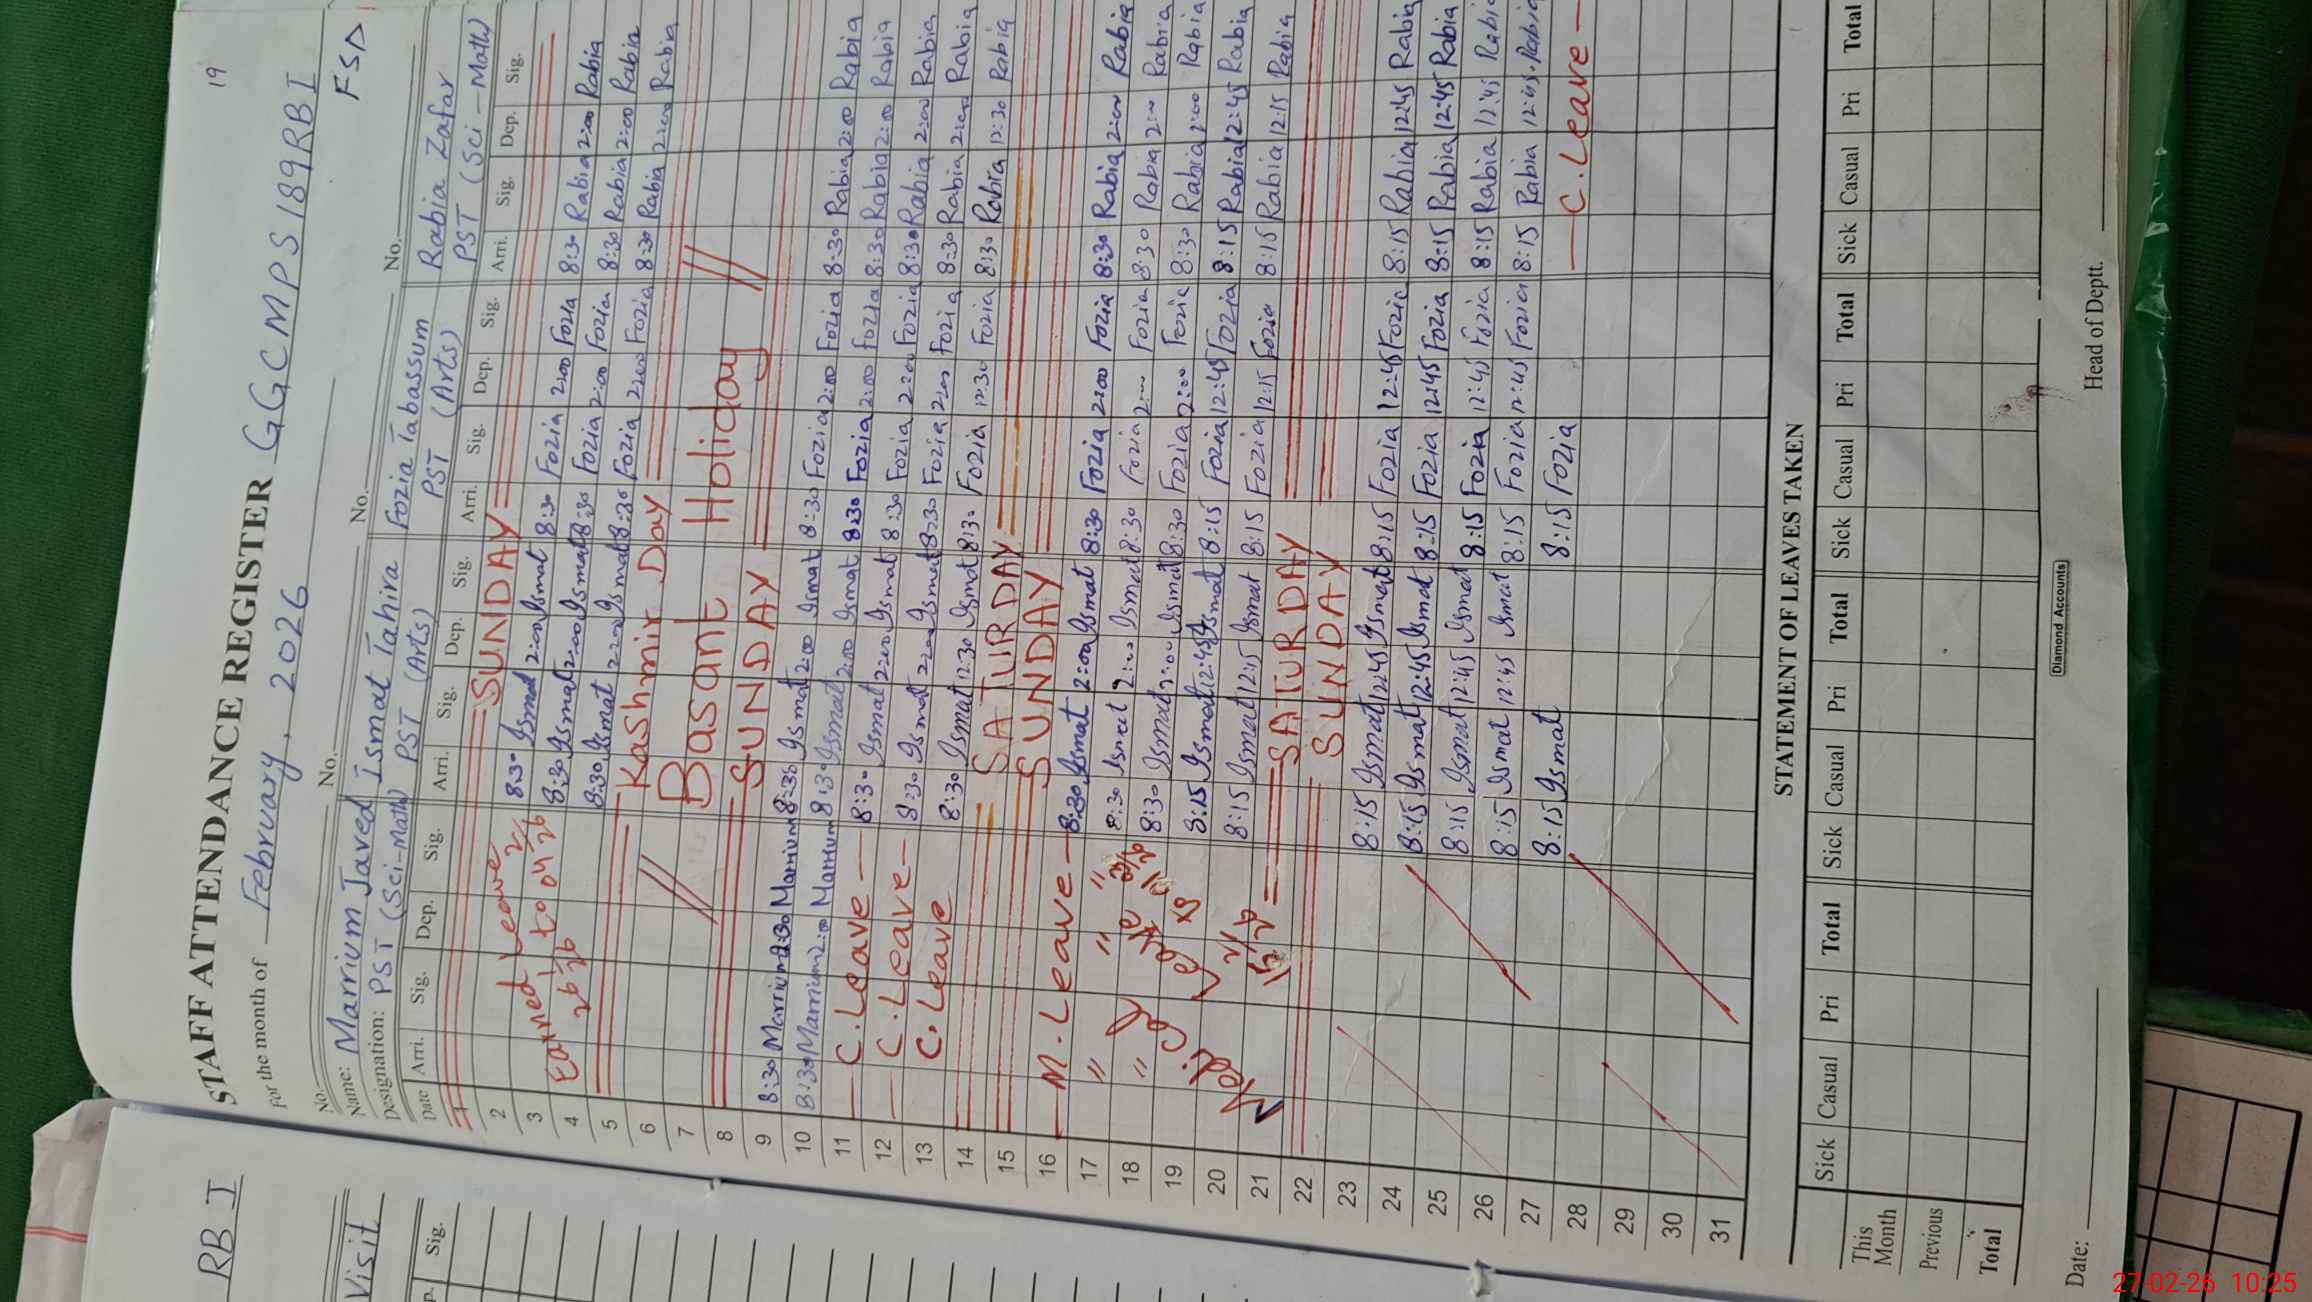 19
STAFF ATTENDANCE REGISTER GGCMPS 189RBI
For the month of February, 2026 FSD
No. No. No. No.
Name: Marrium Javed Ismat Tahira Fozia Tabassum Rabia Zafar
Designation: PST (Sci-Math) PST (Arts) PST (Arts) PST (Sci-Math)
Date Arri. Sig. Dep. Sig. Arri. Sig. Dep. Sig. Arri. Sig. Dep. Sig. Arri. Sig. Dep. Sig.
1 SUNDAY
2 Earned Leave 8:30 Ismat 2:00 Ismat 8:30 Fozia 2:00 Fozia 8:30 Rabia 2:00 Rabia
3 8:30 Ismat 2:00 Ismat 8:30 Fozia 2:00 Fozia 8:30 Rabia 2:00 Rabia
4 8:30 Ismat 2:00 Ismat 8:30 Fozia 2:00 Fozia 8:30 Rabia 2:00 Rabia
5 Kashmir Day
6 Basant Holiday
7
8 SUNDAY
9 8:30 Marrium 2:30 Marrium 8:30 Ismat 2:00 Ismat 8:30 Fozia 2:00 Fozia 8:30 Rabia 2:00 Rabia
10 8:30 Marrium 2:00 Marrium 8:30 Ismat 2:00 Ismat 8:30 Fozia 2:00 Fozia 8:30 Rabia 2:00 Rabia
11 C.Leave 8:30 Ismat 2:00 Ismat 8:30 Fozia 2:00 Fozia 8:30 Rabia 2:00 Rabia
12 C.Leave 8:30 Ismat 2:00 Ismat 8:30 Fozia 2:00 Fozia 8:30 Rabia 2:00 Rabia
13 C.Leave 8:30 Ismat 12:30 Ismat 8:30 Fozia 12:30 Fozia 8:30 Rabia 12:30 Rabia
14 SATURDAY
15 SUNDAY
16 M.Leave 8:30 Ismat 2:00 Ismat 8:30 Fozia 2:00 Fozia 8:30 Rabia 2:00 Rabia
17 " " " 8:30 Ismat 2:00 Ismat 8:30 Fozia 2:00 Fozia 8:30 Rabia 2:00 Rabia
18 " 8:30 Ismat 2:00 Ismat 8:30 Fozia 2:00 Fozia 8:30 Rabia 2:00 Rabia
19 Medical Leave 8:15 Ismat 12:45 Ismat 8:15 Fozia 12:45 Fozia 8:15 Rabia 12:45 Rabia
20 8:15 Ismat 12:15 Ismat 8:15 Fozia 12:15 Fozia 8:15 Rabia 12:15 Rabia
21 SATURDAY
22 SUNDAY
23 8:15 Ismat 12:45 Ismat 8:15 Fozia 12:45 Fozia 8:15 Rabia 12:45 Rabia
24 8:15 Ismat 12:45 Ismat 8:15 Fozia 12:45 Fozia 8:15 Rabia 12:45 Rabia
25 8:15 Ismat 12:45 Ismat 8:15 Fozia 12:45 Fozia 8:15 Rabia 12:45 Rabia
26 8:15 Ismat 12:45 Ismat 8:15 Fozia 12:45 Fozia 8:15 Rabia 12:45 Rabia
27 8:15 Ismat 8:15 Fozia C.Leave
28
29
30
31
STATEMENT OF LEAVES TAKEN
Sick Casual Pri Total Sick Casual Pri Total Sick Casual Pri Total Sick Casual Pri Total
This Month
Previous
Total
Date: Diamond Accounts Head of Deptt.
RB I
Visit
p. Sig.
27-02-26 10:25